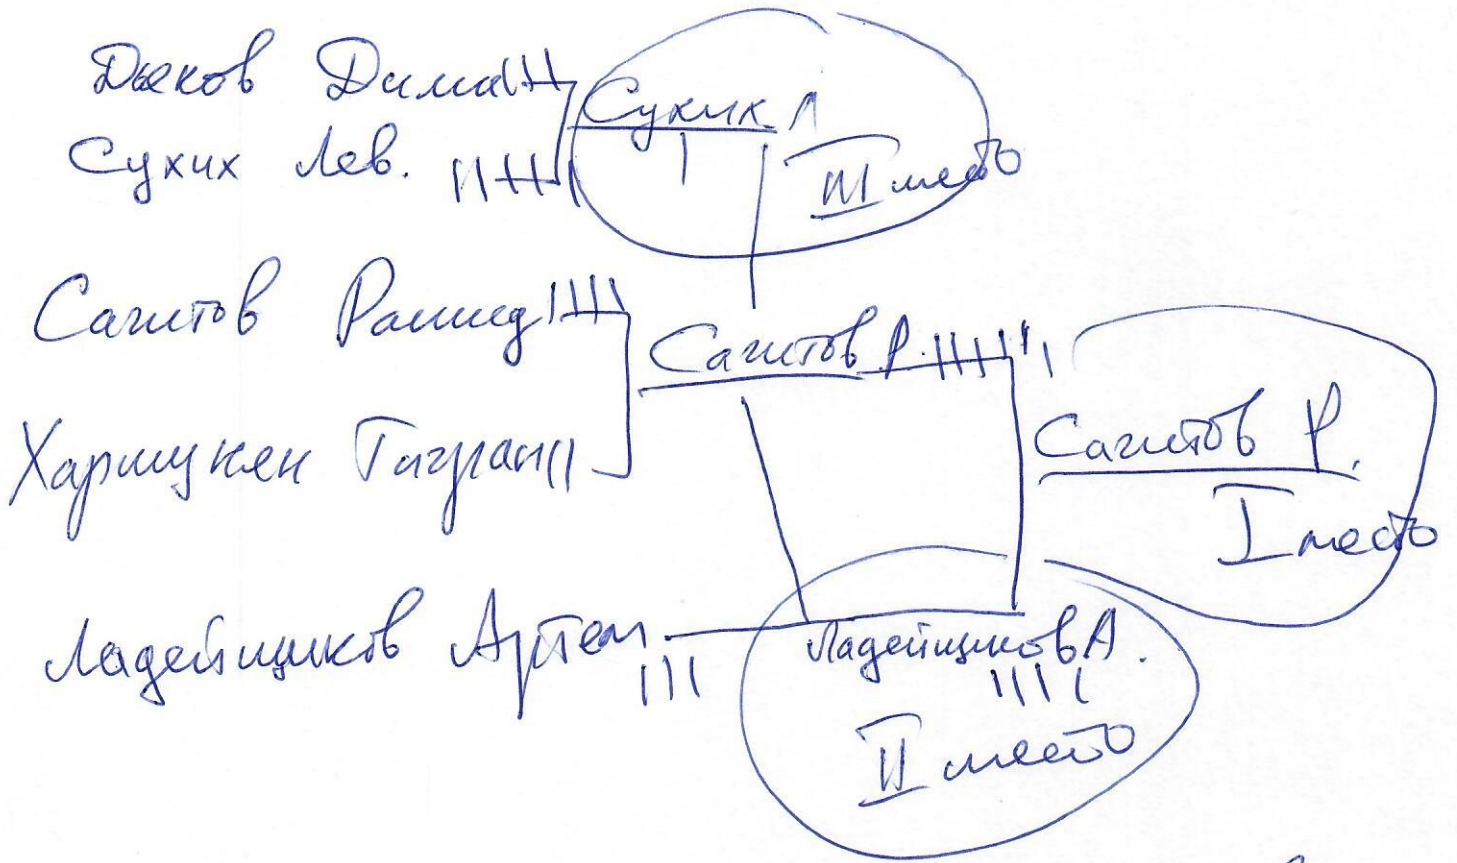 Дьяков Дима
Сухих Л
Сухих Лев.
III место
Сагитов Рашид
Сагитов Р.
Сагитов Р.
I место
Ладейщиков Артем
Ладейщиков А.
II место